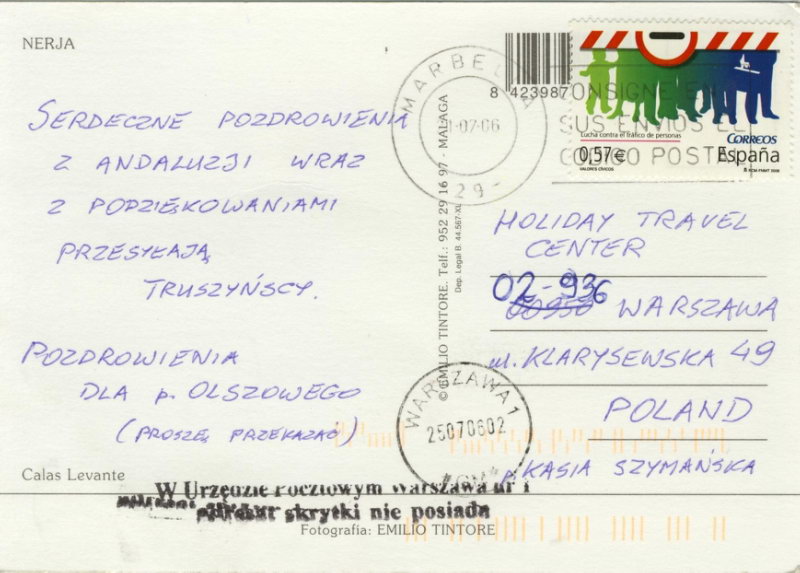 NERJA
SERDECZNE POZDROWIENIA
Z ANDALUZJI WRAZ
Z PODZIĘKOWANIAMI
PRZESYŁAJĄ
TRUSZYŃSCY.
POZDROWIENIA
DLA p. OLSZOWEGO
(PROSZĘ PRZEKAZAĆ)
Calas Levante
© EMILIO TINTORE. Telf.: 952 29 16 97 - MALAGA
Dep. Legal B. 44.567-XL
8 423987
MARBELLA
-07-06
29-
CONSIGNE EN
SUS ENVIOS EL
CODIGO POSTAL
Lucha contra el tráfico de personas
0,57€
VALORES CÍVICOS
CORREOS
España
HOLIDAY TRAVEL
CENTER
02-936
WARSZAWA
ul. KLARYSEWSKA 49
POLAND
p. KASIA SZYMAŃSKA
WARSZAWA 1
25070602
W Urzędzie Pocztowym Warszawa nr 1
skrytki nie posiada
Fotografia: EMILIO TINTORE